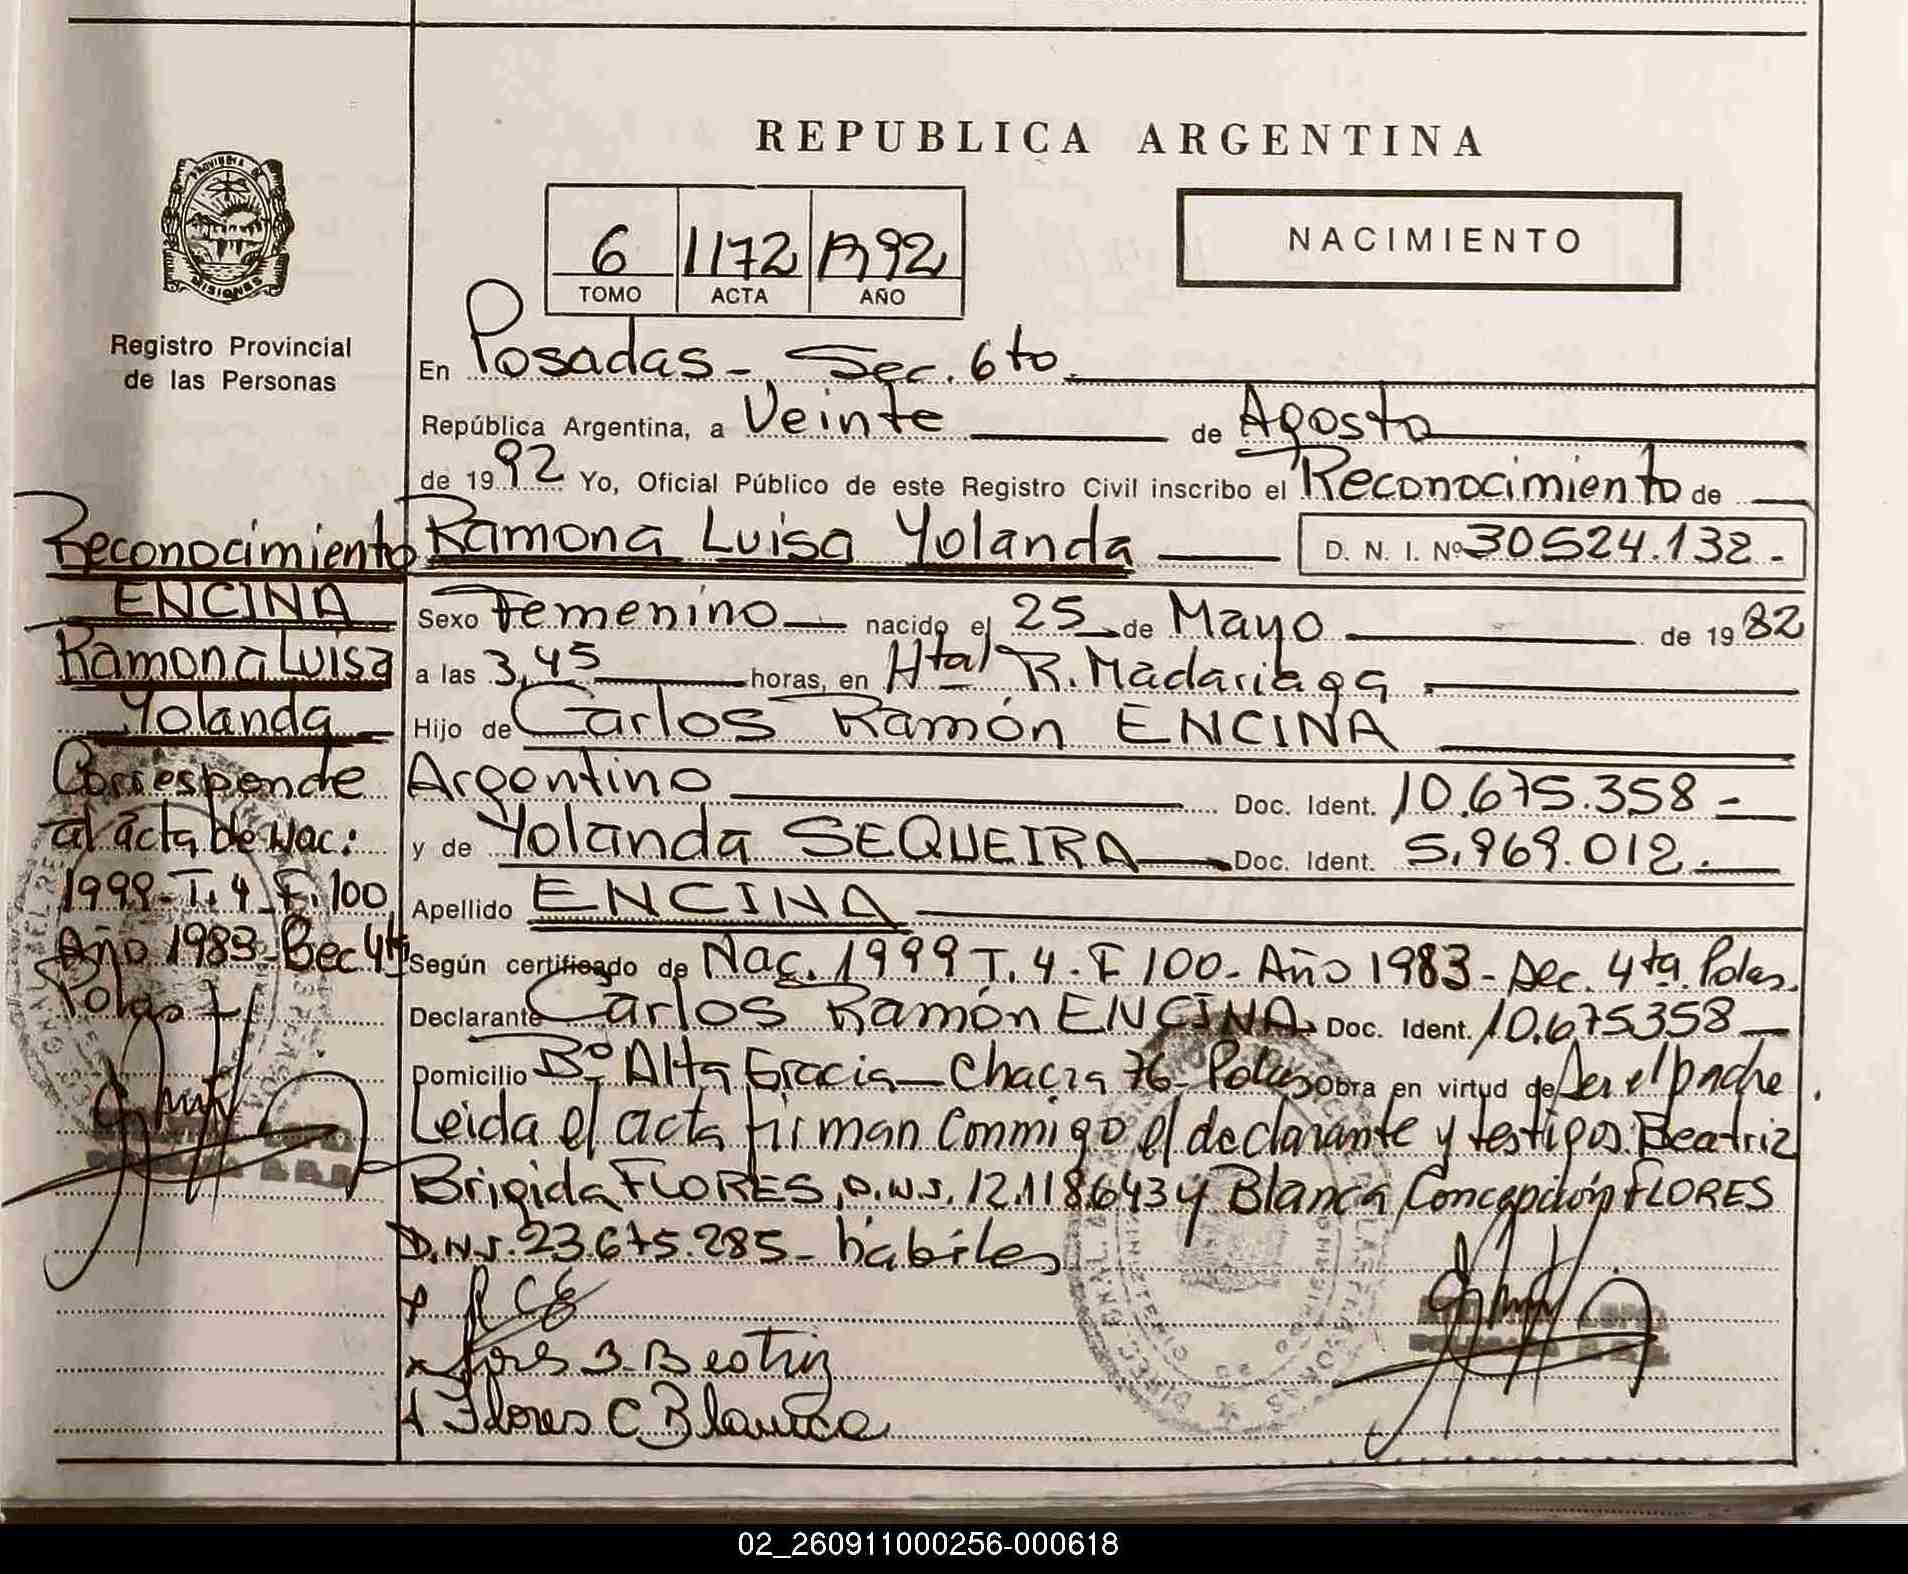 REPUBLICA ARGENTINA
NACIMIENTO
6 1172 1992
TOMO ACTA AÑO
PROVINCIA DE
MISIONES
Registro Provincial
de las Personas
En Posadas - Sec. 6to
República Argentina, a Veinte de Agosto
de 1992 Yo, Oficial Público de este Registro Civil inscribo el Reconocimiento de
Ramona Luisa Yolanda D. N. I. Nº 30.524.132.-
Sexo Femenino nacido el 25 de Mayo de 1982
a las 3,45 horas, en Htal R. Madariaga
Hijo de Carlos Ramón ENCINA
Argentino Doc. Ident. 10.675.358-
y de Yolanda SEQUEIRA Doc. Ident. 5.969.012.
Apellido ENCINA
Según certificado de Nac. 1999 T. 4 - F 100 - Año 1983 - Sec. 4ta. Pdas.
Declarante Carlos Ramón ENCINA Doc. Ident. 10.675358
Domicilio Bº Alta Gracia - Chacra 76 - Pdas Obra en virtud de Ser el padre
Leida el acta firman conmigo el declarante y testigos: Beatriz
Brigida FLORES, D.N.I. 12.118.643 y Blanca Concepción FLORES
D.N.I. 23.675.285 - hábiles
Flores B. Beatriz
Flores C Blanca
Reconocimiento
ENCINA
Ramona Luisa
Yolanda
Corresponde
al acta de Nac:
1999 - T. 4 F. 100
Año 1983 - Sec 4ta
Pdas
02_260911000256-000618